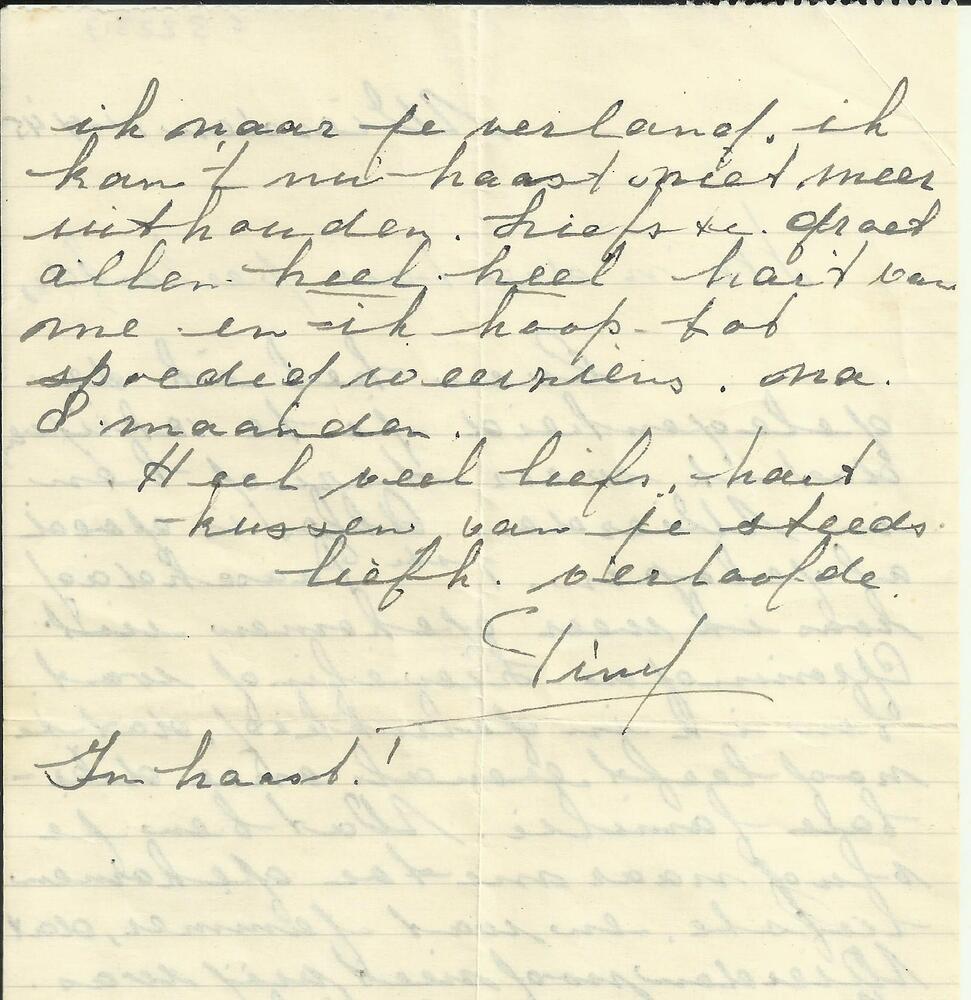 ik naar je verlang. ik
kan 't nu haast niet meer
uithouden. Liefste. groet
allen heel heel hart van
me en ik hoop tot
spoedig weerziens. na.
8 maanden.
Heel veel liefs, hart
kussen van je steeds
liefh. verloofde.
Tiny
In haast!